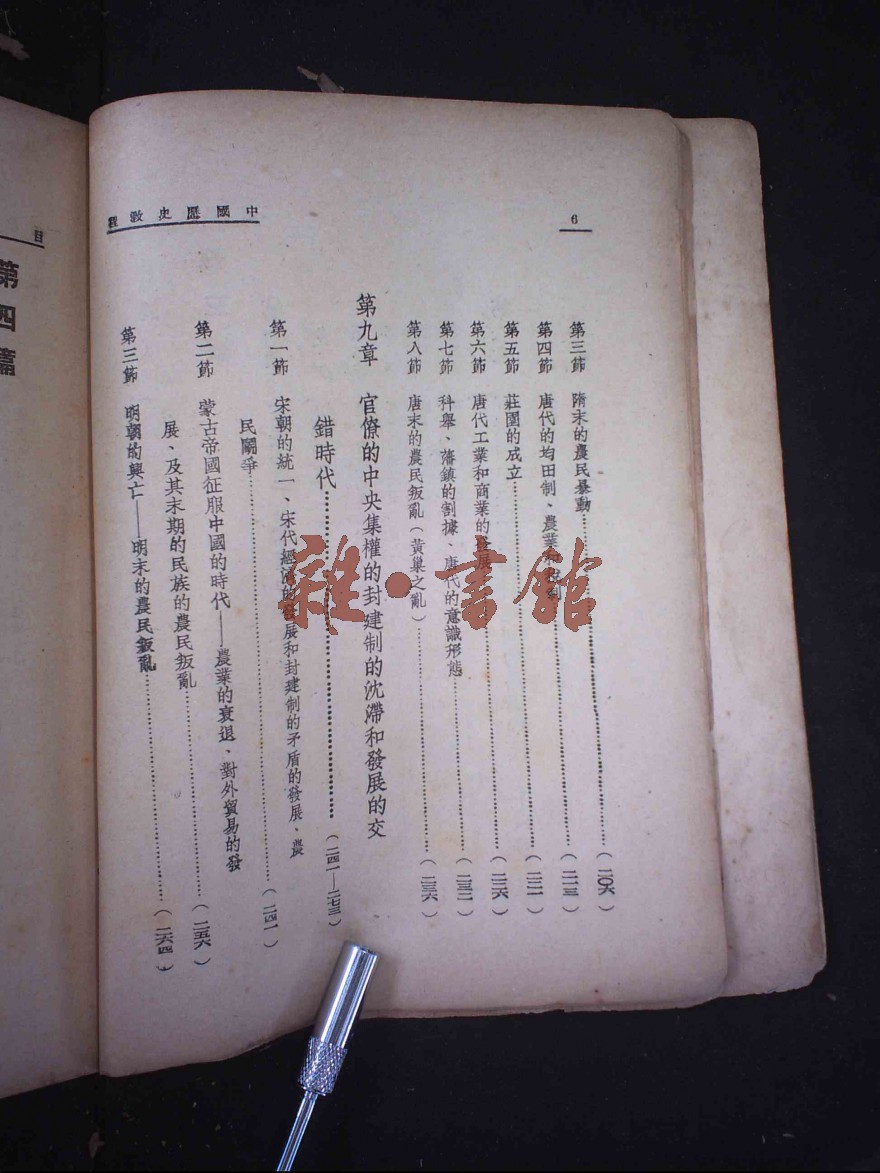 中國歷史教程
6
第三節 隋末的農民暴動……(二〇六)
第四節 唐代的均田制、農業和稅制……(二一三)
第五節 莊園的成立……(二二一)
第六節 唐代工業和商業的發展……(二二六)
第七節 科舉、藩鎮的割據、唐代的意識形態……(二三二)
第八節 唐末的農民叛亂(黃巢之亂)……(二三六)
第九章 官僚的中央集權的封建制的沈滯和發展的交
錯時代……(二四一—二七三)
第一節 宋朝的統一、宋代經濟的發展和封建制的矛盾的發展、農
民鬭爭……(二四一)
第二節 蒙古帝國征服中國的時代——農業的衰退、對外貿易的發
展、及其末期的民族的農民叛亂……(二五六)
第三節 明朝的興亡——明末的農民叛亂……(二六四)
目
第四篇
雜·書館